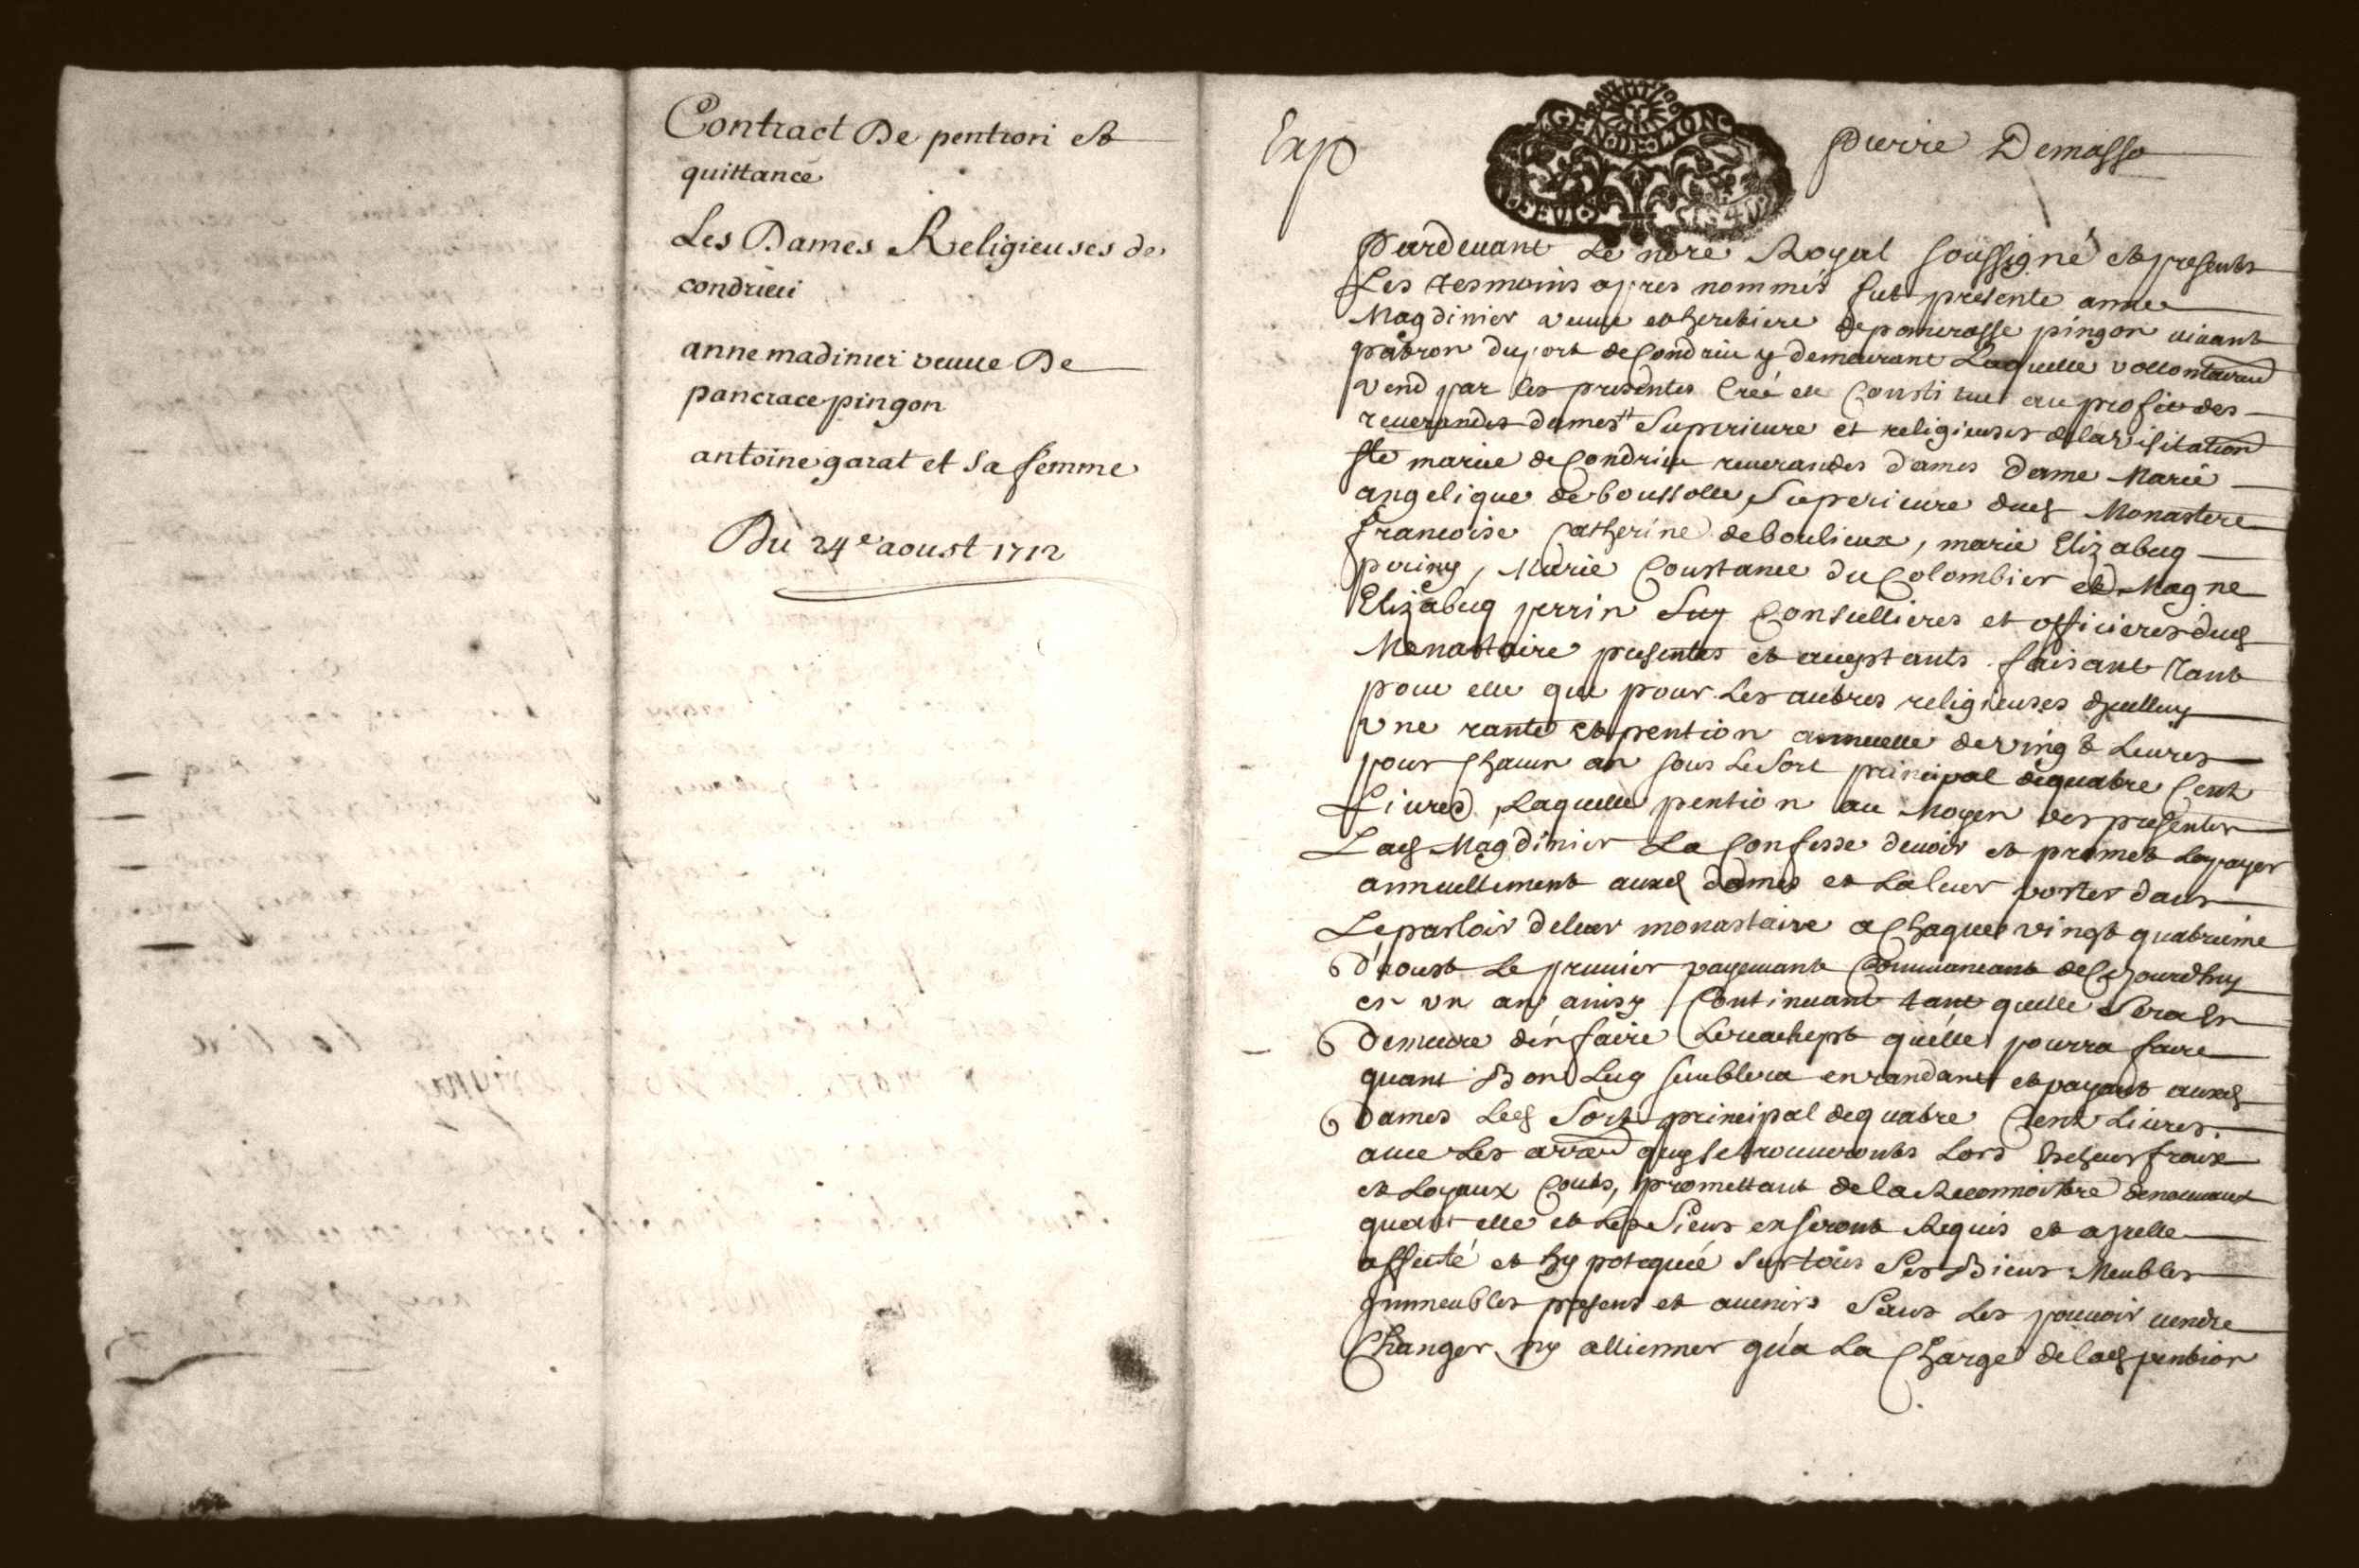 Contract De pention et
quittance
Les Dames Religieuses de
condrieu
anne madinier veuve De
pancrace pingon
antoine garat et sa femme
Du 24e aoust 1712
Exp
GEN DE LYON
pierre Demasso
Pardevant le nore Royal soussigné et presents
Les tesmoins apres nommés fut presente anne
Magdinier veuve et heretiere de pancrasse pingon vivant
patron du port de Condrieu y demeurant Laquelle vollontairemt
vend par les presentes Creé et Constitue au profit des
reverandes dames Superieure et religieuses de la visitation
ste marie de Condrieu reverandes dames dame Marie
angelique de boussolle, Superieure dud Monastere
francoise Catherine de boulieux, marie Elizabeq
, Marie Constance du Colombier et Magne
Elizabeq perrin Consellieres et officieres dud
Monastaire presentes et aceptants faisant Tant
pour elle que pour les autres religieuses dycelluy
une rante et pention annuelle de vingt Livres
pour Chacun an sous le Sort principal de quatre Cent
Livres, Laquelle pention au Moyen des presentes
Lad Magdinier La Confesse devoir et promet la payer
annuellement auxd dames et la leur porter dans
Le parloir de leur monastaire a Chaque vingt quatrieme
d'aoust Le premier payemant Commancant de Cejourdhuy
en un an ainsy Continuant tant quelle Sera En
demeure d'en faire Le reachept qu'elle pourra faire
quant Bon Luy semblera en randant et payant auxd
dames Led Sort principal de quatre Cent Livres.
avec Les quy se trouveronts Lors fraix
et Loyaux Couts, promettant de la Reconnoistre de nouveaux
quant elle et Les Siens en seront Requis et apelle
affecté et hypotequée sur tous Ses Biens Meubles
ymmeubles presens et avenirs Sans Les pouvoir vendre
Changer ny alliener qu'a La Charge de lad pention